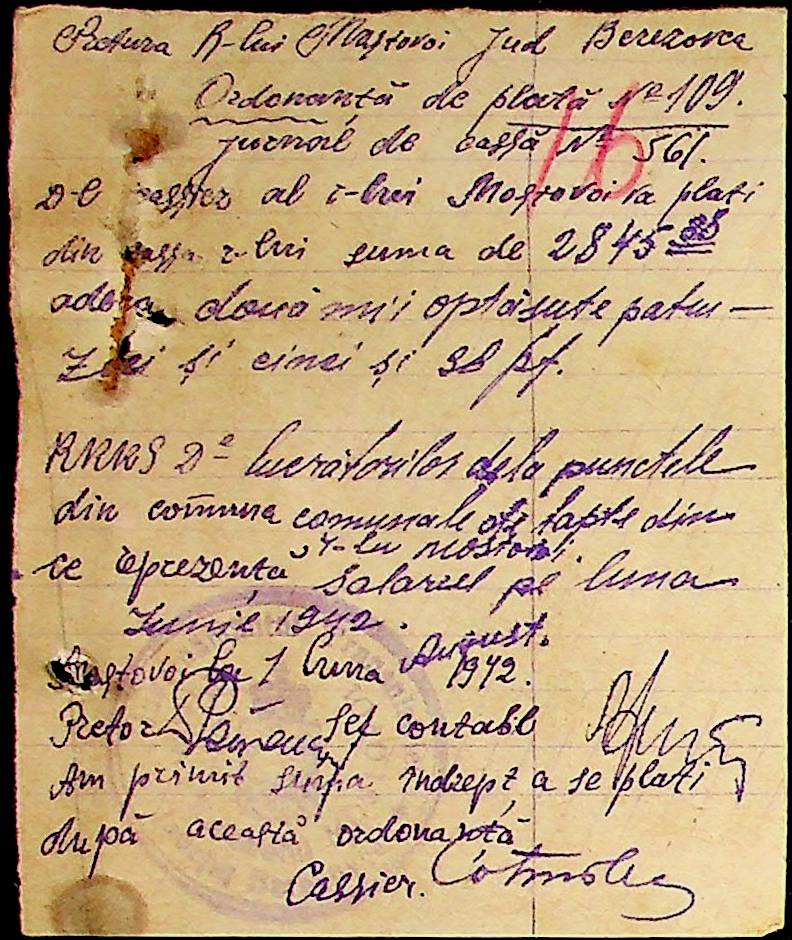 Pretura R-lui Mostovoi Jud Berezovca
Ordonanță de plată № 109.
jurnal de cassă № 561.
16
D-l cassier al r-lui Mostovoi va plati
din cassa r-lui suma de 2845 38
adeca două mii optăsute patru-
zeci și cinci și 38 pf.
RKKS Dª lucrătorilor dela punctele
din comuna comunale de lapte din
r-lu mostovoi
ce reprezentă salariul pe luna
Iunie 1942.
Mostovoi la 1 luna August.
1942.
Pretor Șef contabil
Am primit suma îndrept a se plati
după această ordonanță
Cassier.